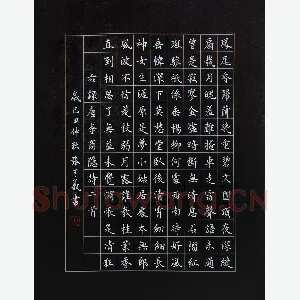 鳳尾香羅薄幾重碧文圓頂夜深縫
扇裁月魄羞難掩車走雷聲語未通
曾是寂寥金燼暗斷無消息石榴紅
斑騅只繫垂楊岸何處西南待好風
重幃深下莫愁堂臥後清宵細細長
神女生涯原是夢小姑居處本無郎
風波不信菱枝弱月露誰教桂葉香
直到相思了無益未妨惆悵是清狂
右錄唐李商隱詩二首
歲己丑仲秋張書